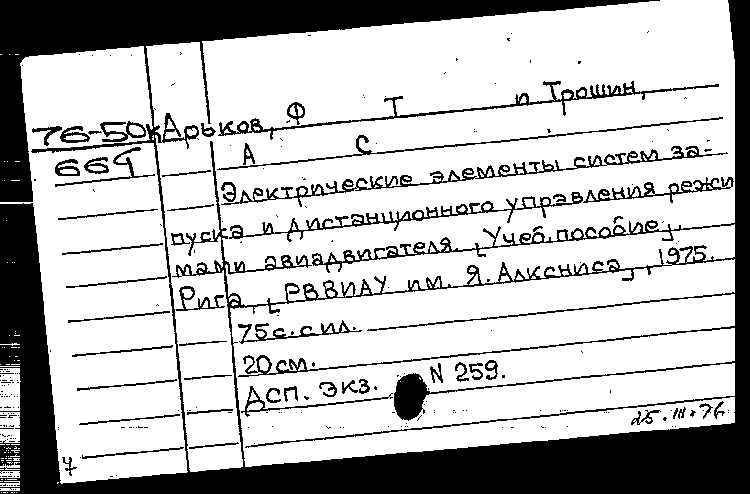 76-50к Арьков, Ф Т и Трошин,
664 А С
Электрические элементы систем за=
пуска и дистанционного управления режи
мами авиадвигателя. [Учеб. пособие].
Рига, [РВВИАУ им. Я. Алксниса], 1975.
75с. с ил.
20 см.
ДСП. Экз. N 259.
25.III.76